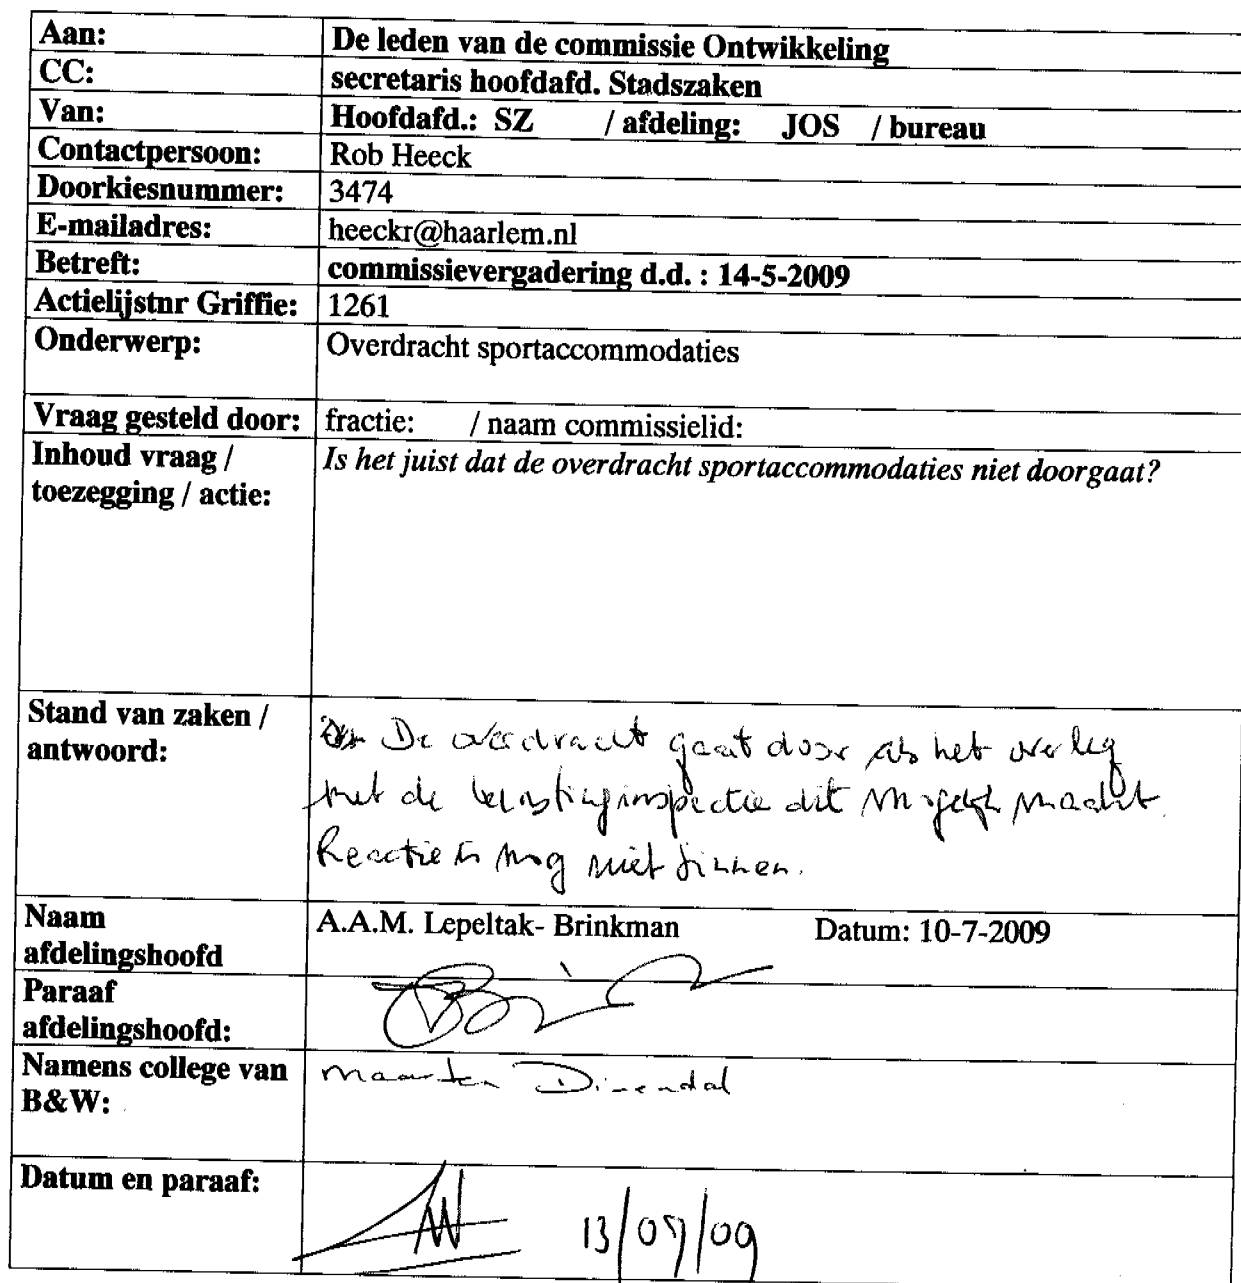 Aan: De leden van de commissie Ontwikkeling
CC: secretaris hoofdafd. Stadszaken
Van: Hoofdafd.: SZ / afdeling: JOS / bureau
Contactpersoon: Rob Heeck
Doorkiesnummer: 3474
E-mailadres: heeckr@haarlem.nl
Betreft: commissievergadering d.d. : 14-5-2009
Actielijstnr Griffie: 1261
Onderwerp: Overdracht sportaccommodaties
Vraag gesteld door: fractie: / naam commissielid:
Inhoud vraag / Is het juist dat de overdracht sportaccommodaties niet doorgaat?
toezegging / actie:
Stand van zaken /
antwoord:
De overdracht gaat door als het overleg
met de belastinginspectie dit mogelijk maakt.
Reactie is nog niet binnen.
Naam A.A.M. Lepeltak- Brinkman Datum: 10-7-2009
afdelingshoofd
Paraaf
afdelingshoofd:
Namens college van Maarten Divendal
B&W:
Datum en paraaf: 13/07/09